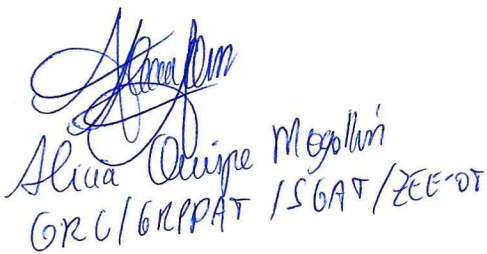 Alicia Quispe Mogollón
GRC/GRPPAT/SGAT/ZEE-OT